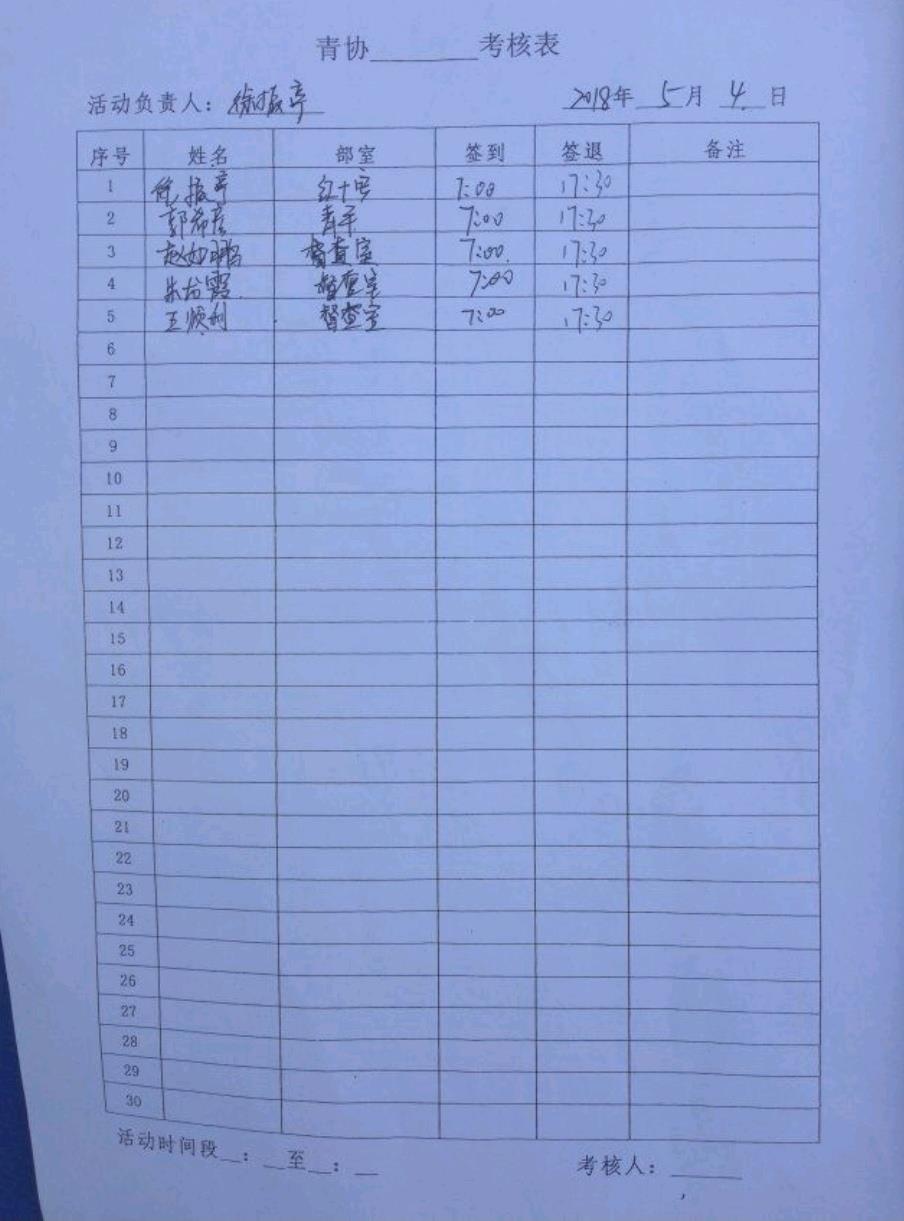 青协________考核表
活动负责人：徐振亭 2018年 5月 4日
序号 姓名 部室 签到 签退 备注
1 徐振亭 红十字 7:00 17:30
2 郭希彦 青年 7:00 17:30
3 赵如鹏 督查室 7:00 17:30
4 朱 霞 督查室 7:00 17:30
5 王顺利 督查室 7:00 17:30
6
7
8
9
10
11
12
13
14
15
16
17
18
19
20
21
22
23
24
25
26
27
28
29
30
活动时间段__：__至__：__ 考核人：______